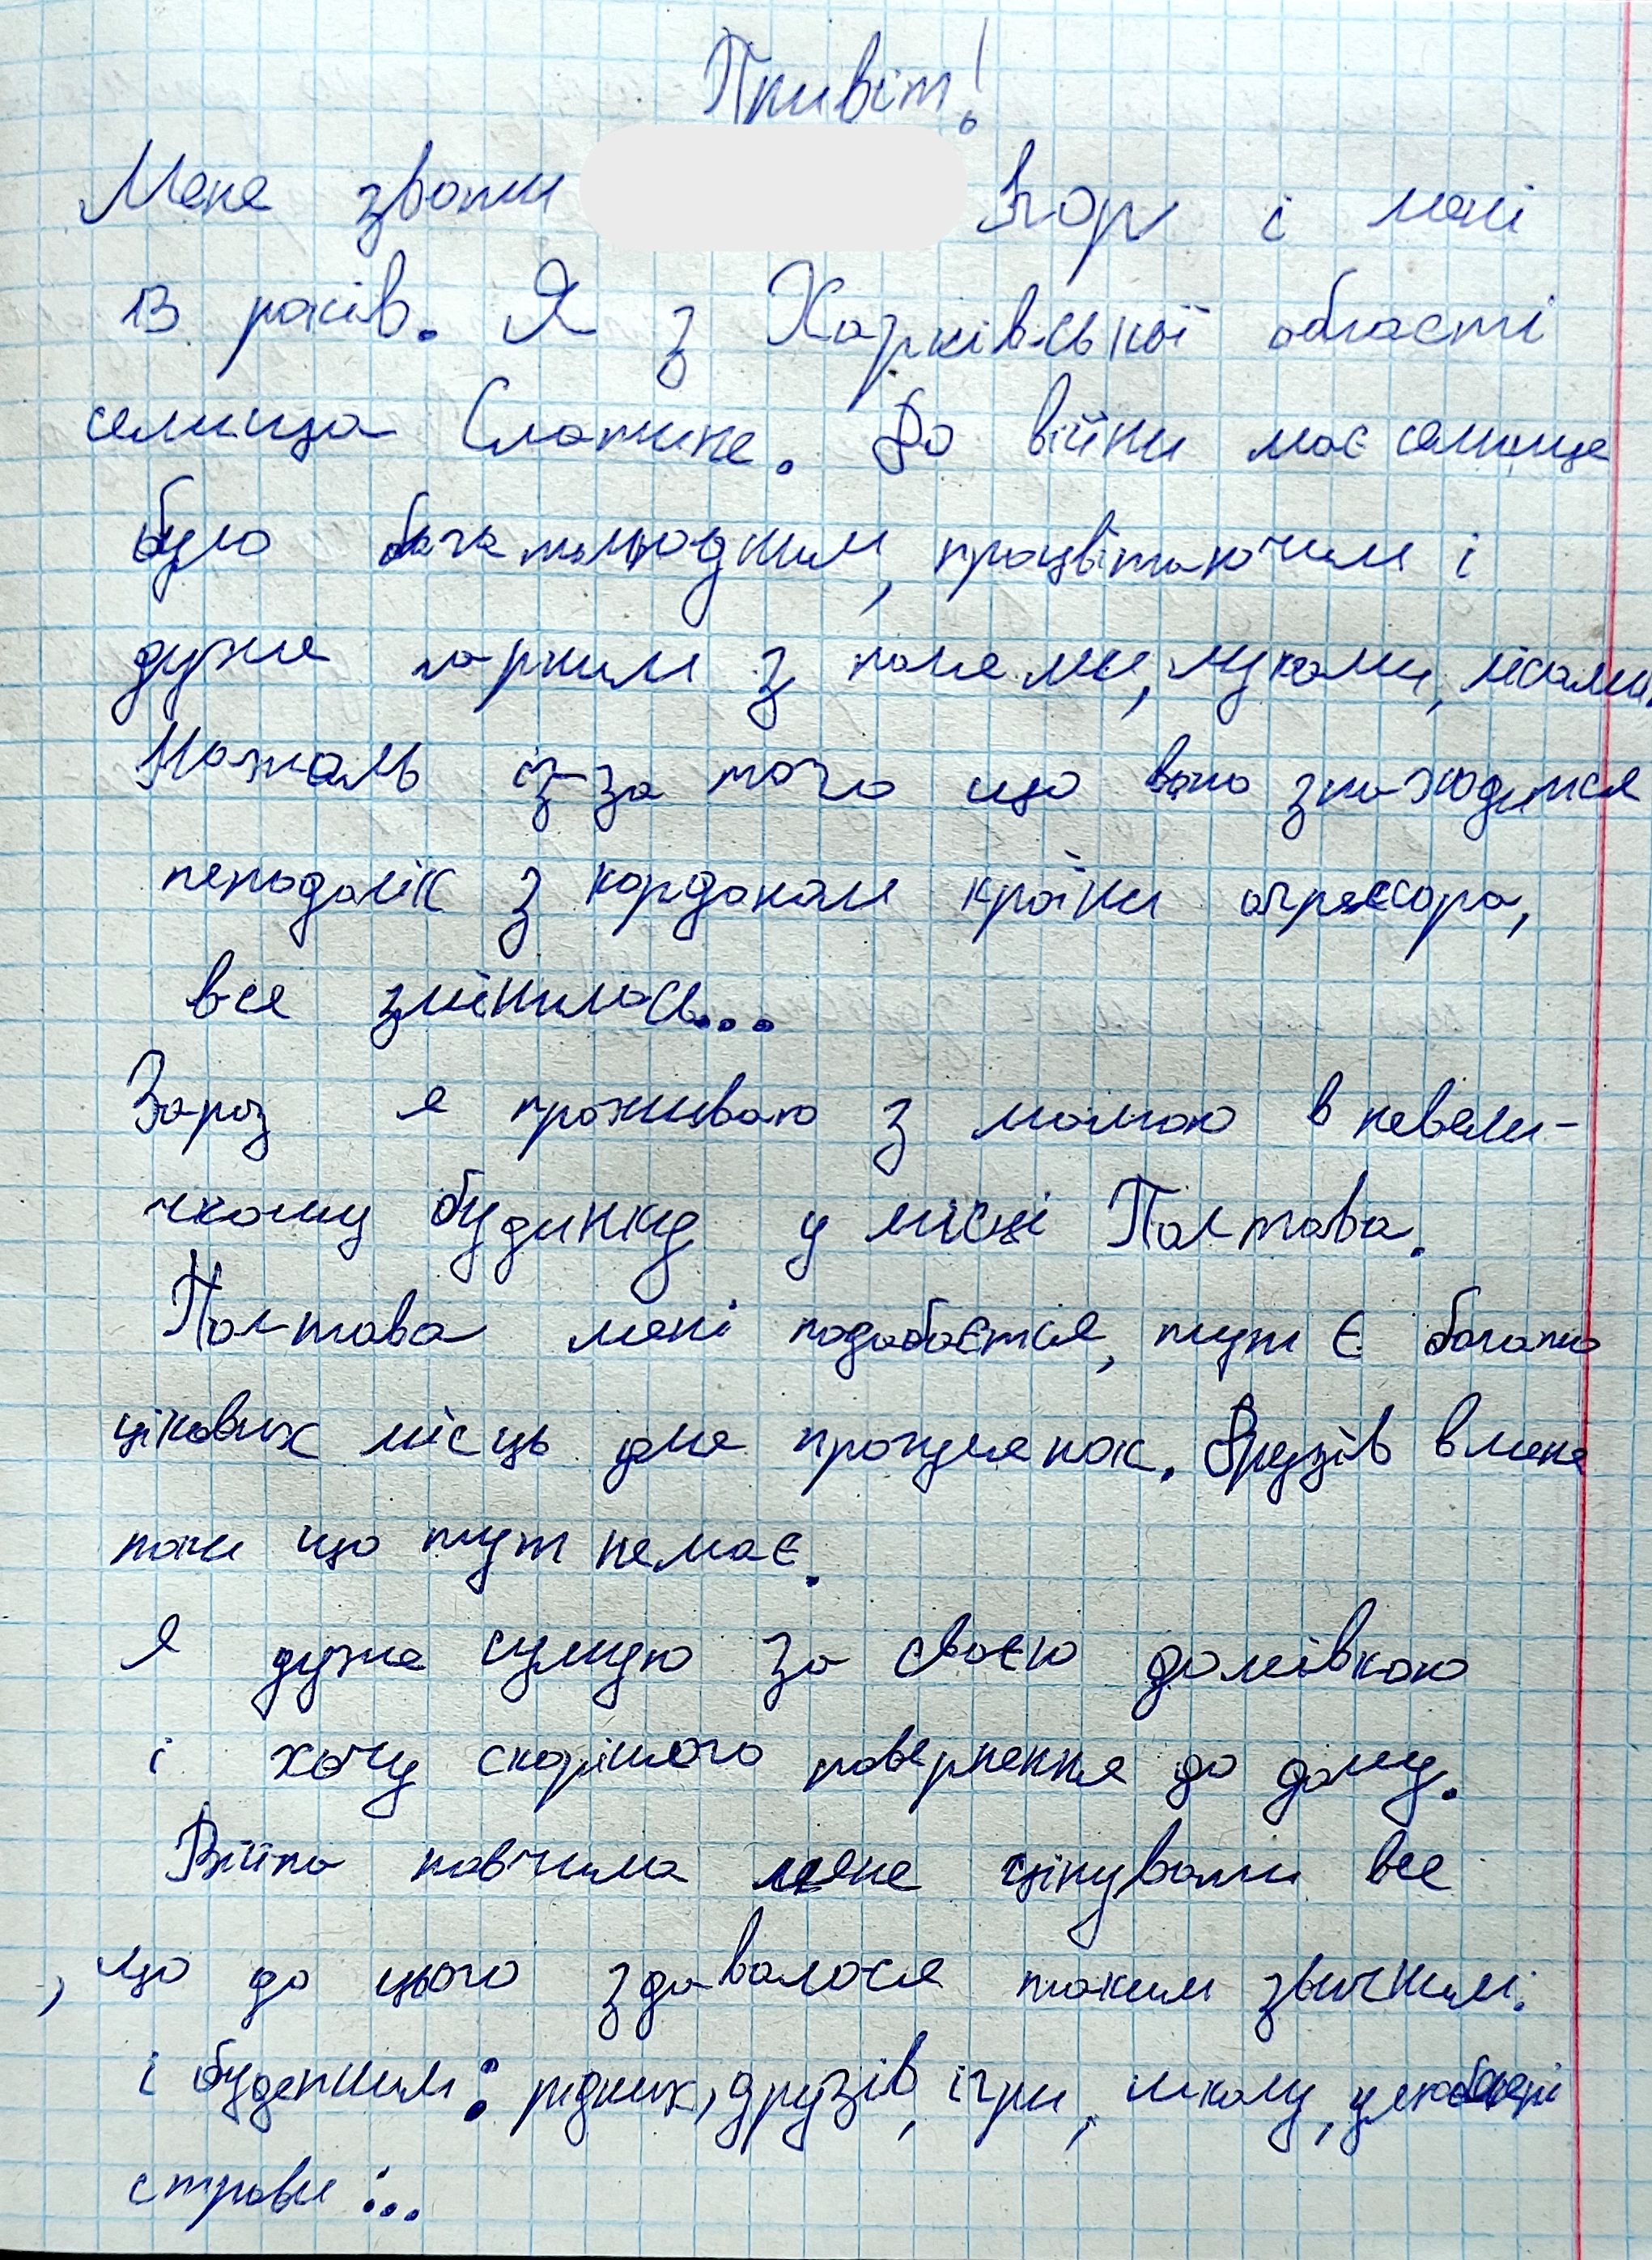 Привіт!
Мене звати Ігор і мені
13 років. Я з Харківської області
селища Слатине. До війни моє селище
було багатолюдним, процвітаючим і
дуже гарним з полями, луками, лісами.
Нажаль із-за того що воно знаходится
неподалік з кордоном країни агрессора,
все змінилось...
Зараз я проживаю з мамою в невели-
чкому будинку у місці Полтава.
Полтава мені подобається, тут є багато
цікавих місць для прогулянок. Друзів в мене
поки що тут немає.
Я дуже сумую за своєю домівкою
і хочу скорішого повернення до дому.
Війна навчила мене цінувати все
, що до цього здавалося таким звичним
і буденним: рідних, друзів, ігри, школу, улюблені
страви...